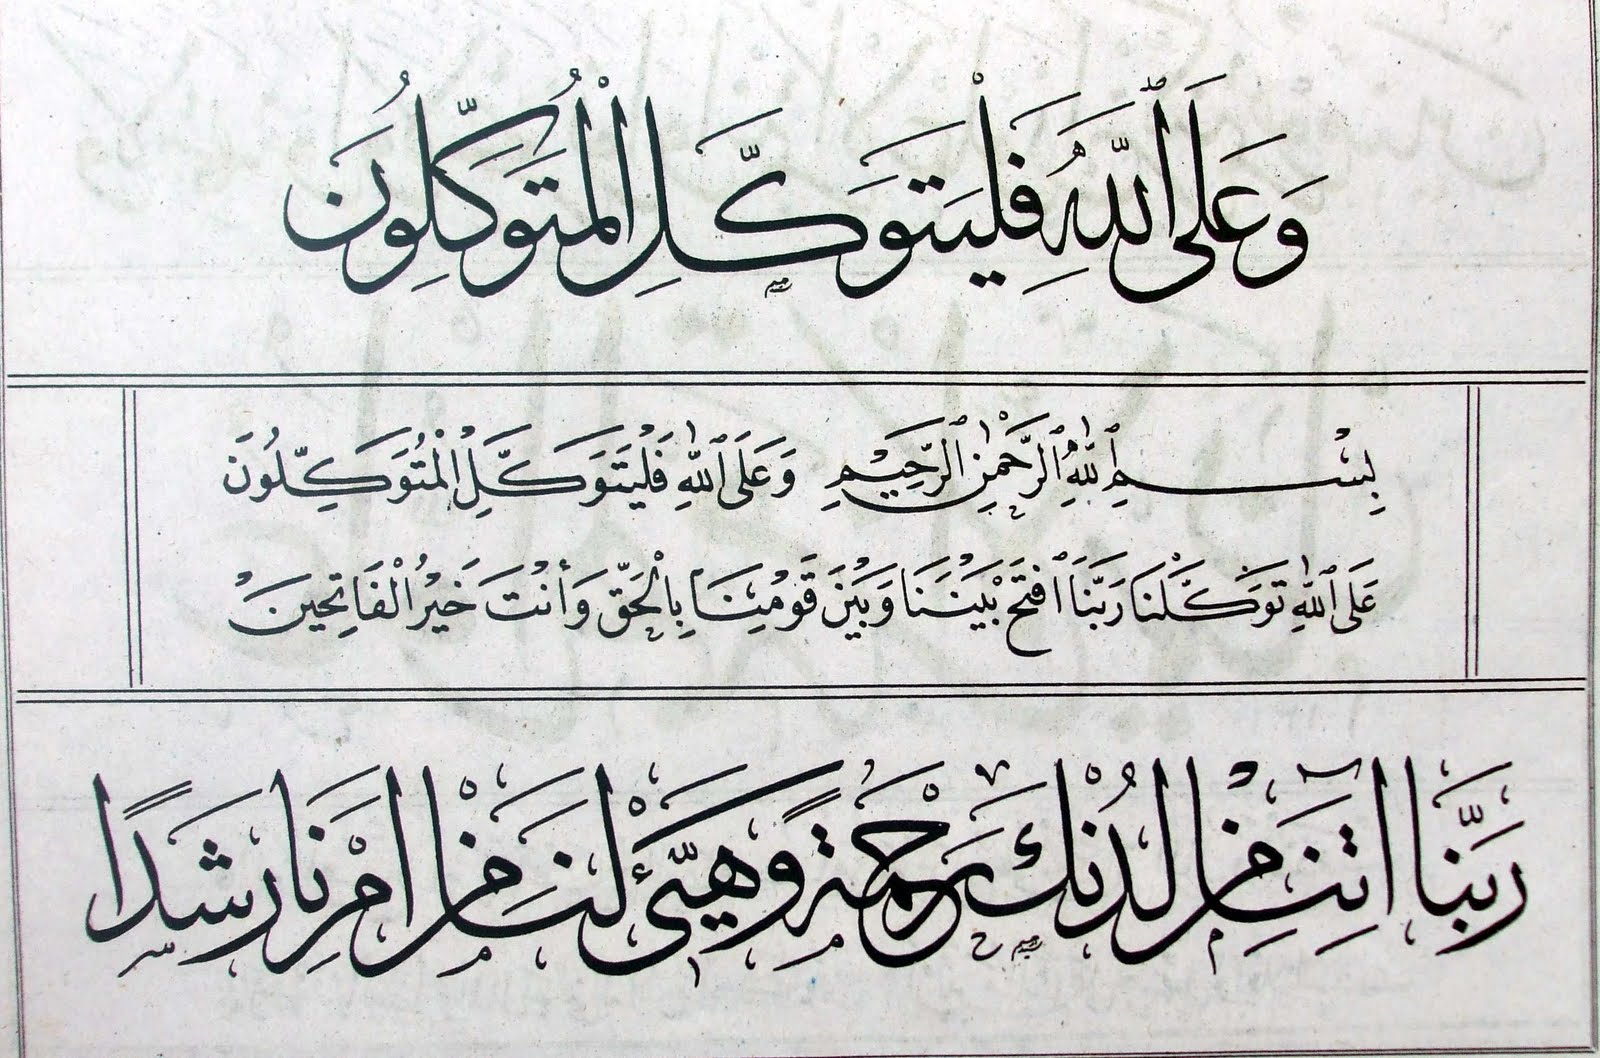 وَعَلَى ٱللَّهِ فَلْيَتَوَكَّلِ الْمُتَوَكِّلُونَ
بِسْمِ ٱللَّهِ ٱلرَّحْمٰنِ ٱلرَّحِيمِ وَعَلَى ٱللَّهِ فَلْيَتَوَكَّلِ الْمُتَوَكِّلُونَ
عَلَى ٱللَّهِ تَوَكَّلْنَا رَبَّنَا ٱفْتَحْ بَيْنَنَا وَبَيْنَ قَوْمِنَا بِالْحَقِّ وَأَنْتَ خَيْرُ الْفَاتِحِينَ
رَبَّنَا اٰتِنَا مِنْ لَدُنْكَ رَحْمَةً وَهَيِّئْ لَنَا مِنْ اَمْرِنَا رَشَدًا